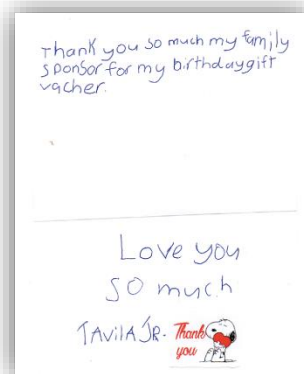 Thank you so much my family
sponsor for my birthdaygift
vacher.
Love you
so much
TAvilA JR. Thank
you